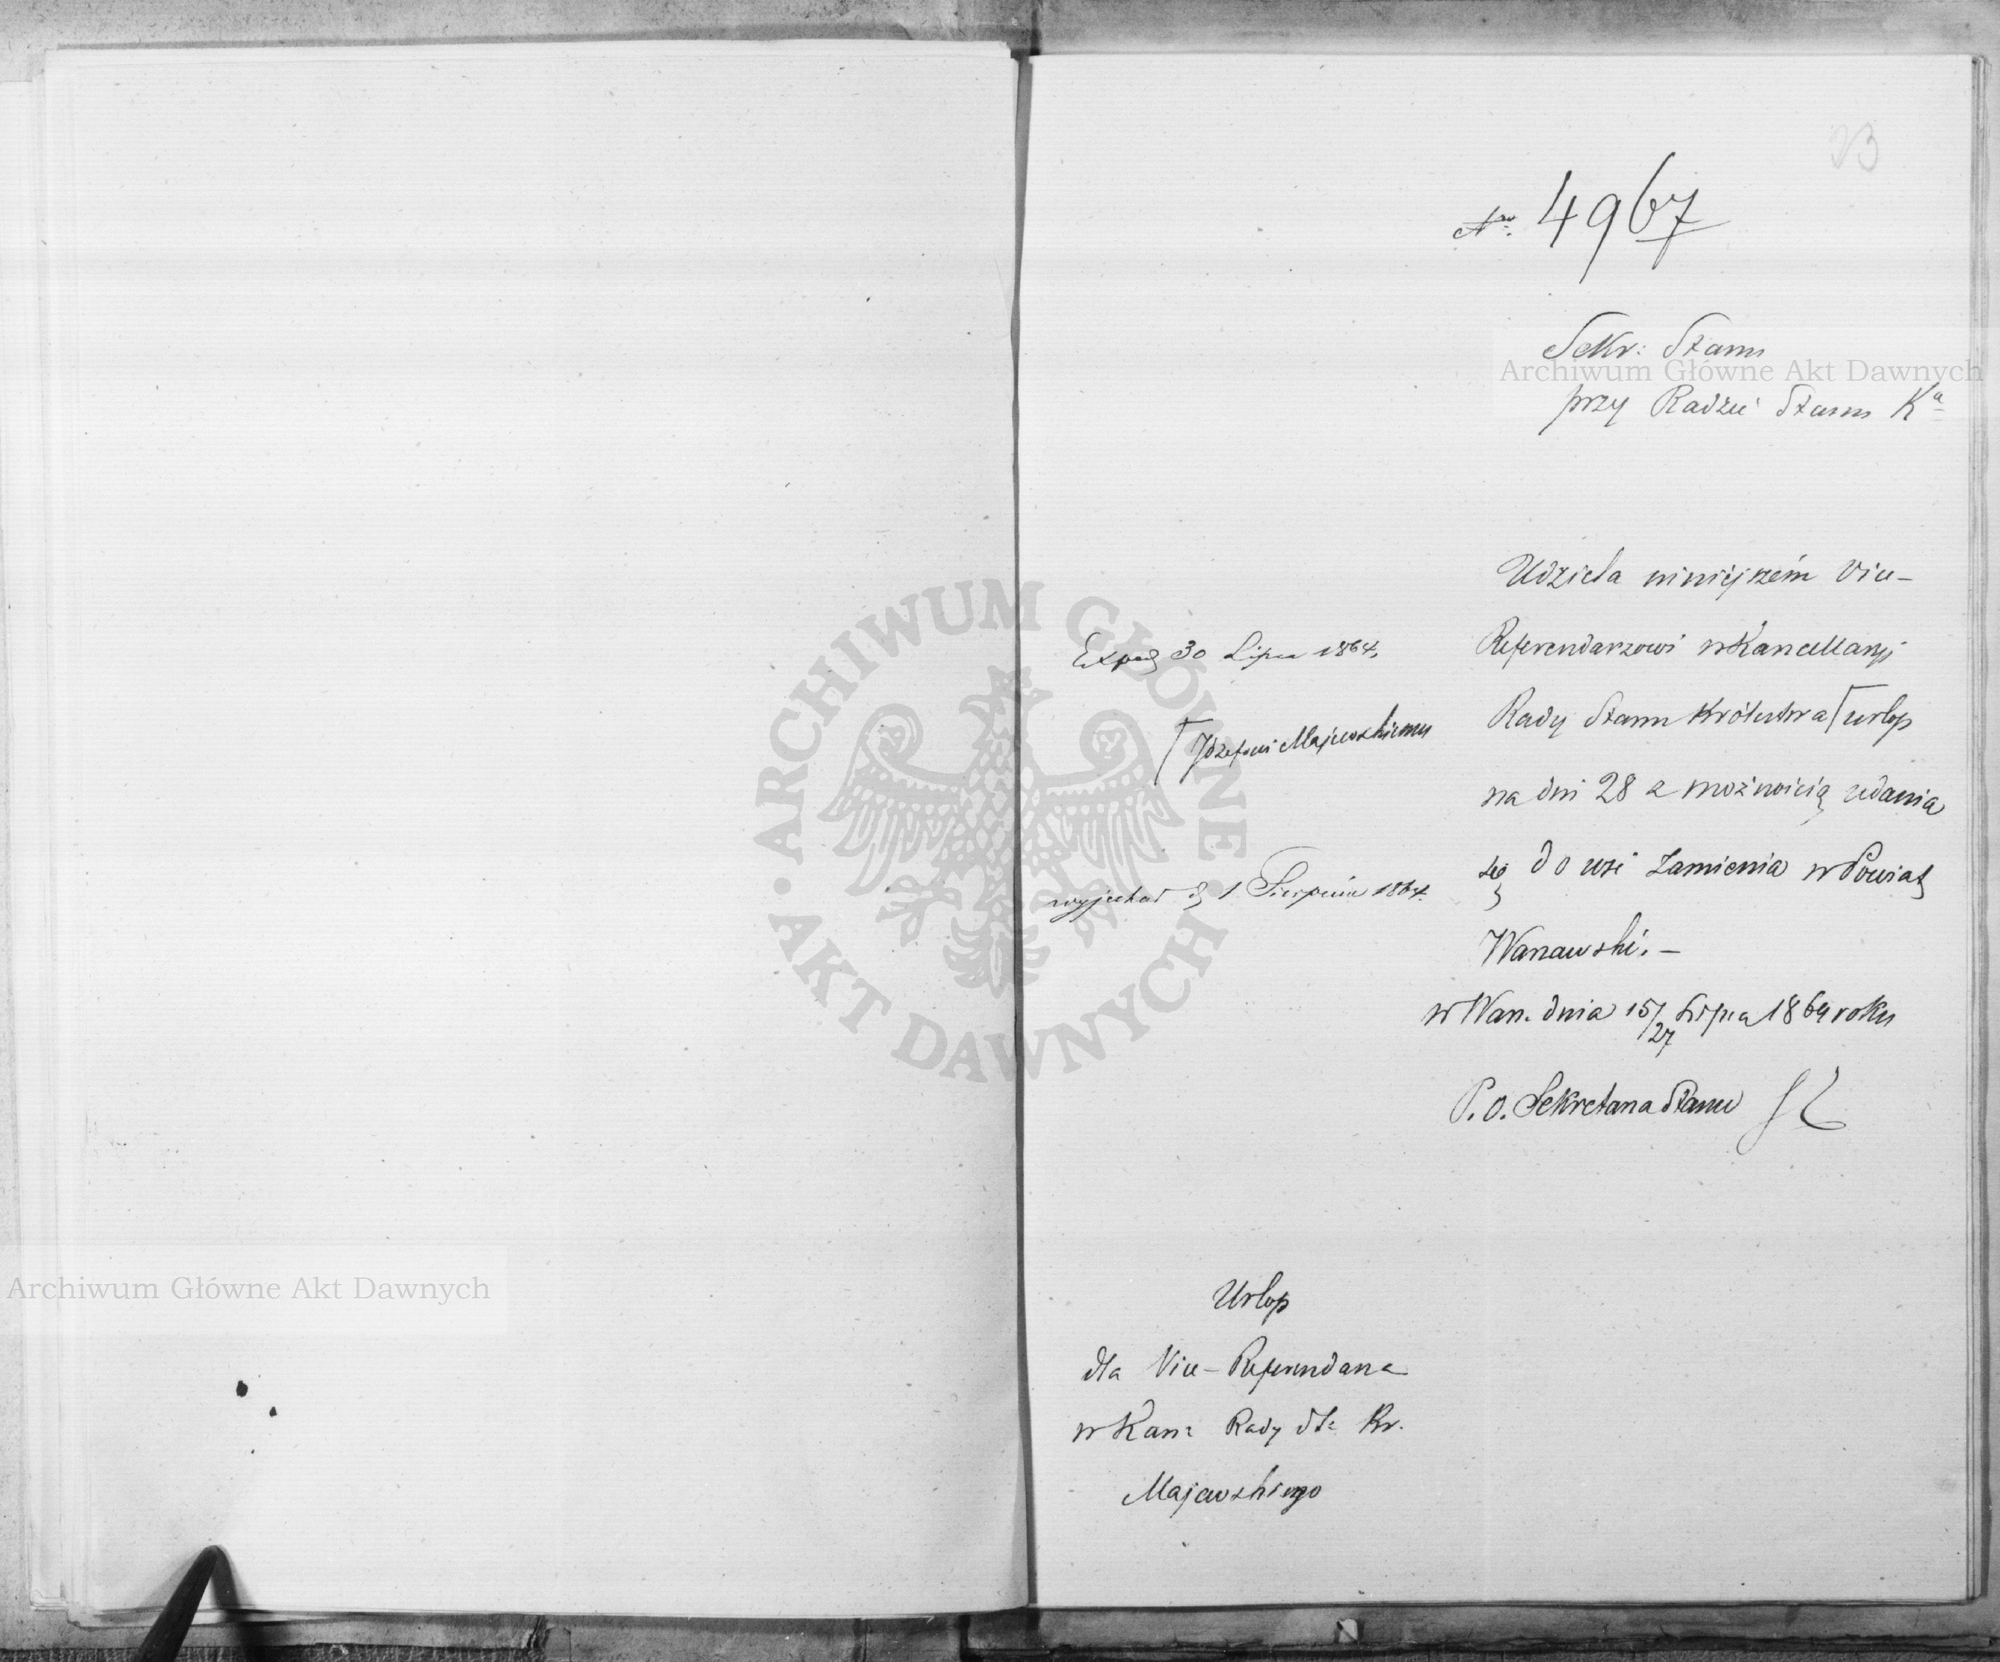 23
Nro. 4967
Sekr: Stanu
przy Radzie Stanu Ka
Udziela niniejszém Vice-
Referendarzowi w Kancellaryi
Rady Stanu Królestwa urlop
na dni 28 z możnością udania
się do wsi Zamienia w Powiat
Warszawski. -
w War. dnia 15/27 Lipca 1864 roku
P. O. Sekretarza Stanu
Exped 30 Lipca 1864.
Józefowi Majewskiemu
wyjechał d 1 Sierpnia 1864.
Urlop
dla Vice-Referendarza
w Kan: Rady St: Kr.
Majewskiego
Archiwum Główne Akt Dawnych
Archiwum Główne Akt Dawnych
ARCHIWUM GŁÓWNE · AKT DAWNYCH ·